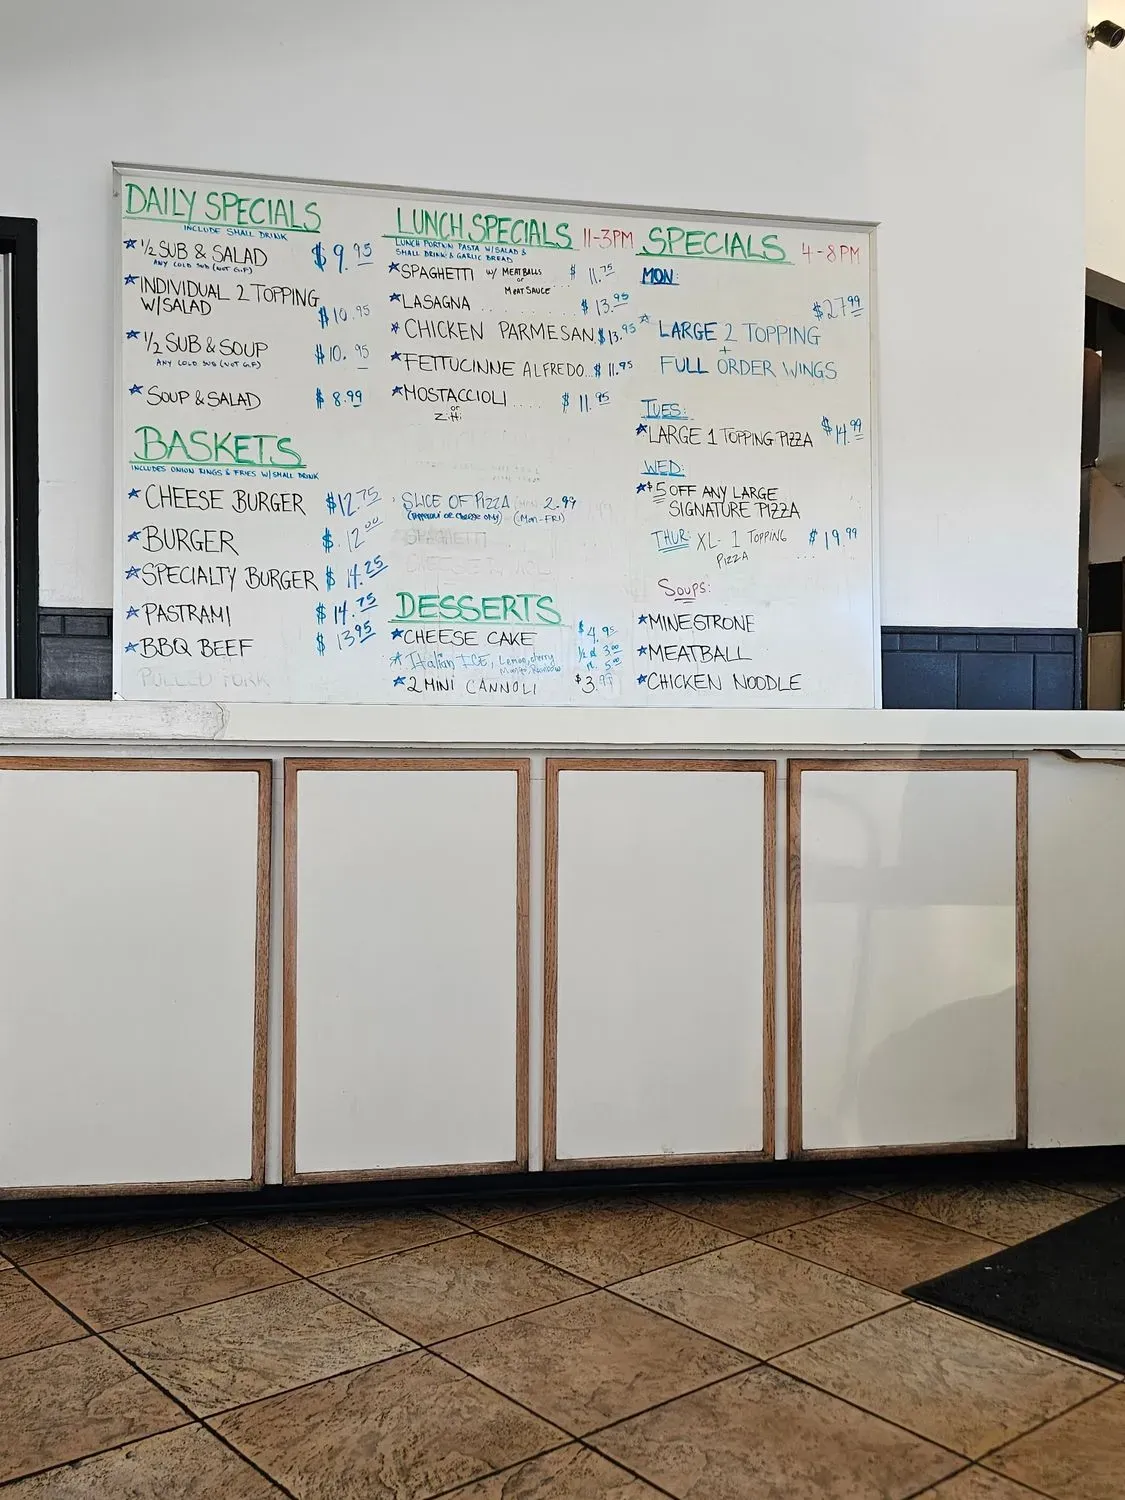 DAILY SPECIALS
INCLUDE SMALL DRINK
★ 1/2 SUB & SALAD $9.95
ANY COLD SUB (NOT G.F)
★ INDIVIDUAL 2 TOPPING
W/SALAD $10.95
★ 1/2 SUB & SOUP $10.95
ANY COLD SUB (NOT G.F)
★ SOUP & SALAD $8.99
BASKETS
INCLUDES ONION RINGS & FRIES W/ SMALL DRINK
★ CHEESE BURGER $12.75
★ BURGER $12.00
★ SPECIALTY BURGER $14.25
★ PASTRAMI $14.75
★ BBQ BEEF $13.95
PULLED PORK
LUNCH SPECIALS 11-3PM
LUNCH PORTION PASTA W/SALAD &
SMALL DRINK & GARLIC BREAD
★ SPAGHETTI W/ MEATBALLS $11.75
or
MEAT SAUCE
★ LASAGNA ........ $13.95
★ CHICKEN PARMESAN $13.95
★ FETTUCINNE ALFREDO... $11.95
★ MOSTACCIOLI .... $11.95
or
Ziti
SLICE OF PIZZA 2.99
(Pepperoni or Cheese only) (Mon-FRI)
SPAGHETTI
DESSERTS
★ CHEESE CAKE $4.95
★ Italian ICE, Lemon, cherry 3.00
Mango, Rainbow 5.00
★ 2 MINI CANNOLI $3.99
SPECIALS 4-8PM
MON:
$27.99
★ LARGE 2 TOPPING
+
FULL ORDER WINGS
TUES:
★ LARGE 1 TOPPING PIZZA $14.99
WED:
★ $5 OFF ANY LARGE
SIGNATURE PIZZA
THUR: XL- 1 TOPPING
PIZZA .... $19.99
SOUPS:
★ MINESTRONE
★ MEATBALL
★ CHICKEN NOODLE